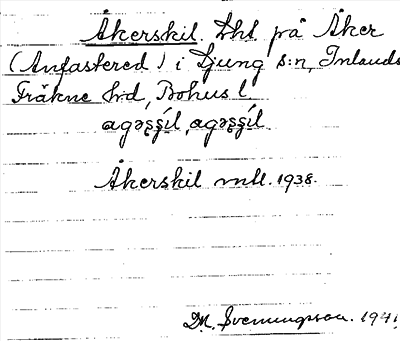 Åkerskil. Lht på Åker
(Anfastered) i Ljung s:n, Inlands
Fräkne hd, Bohus l.
Åkerskil mtl. 1938.
D.M. Svenningsson. 1941